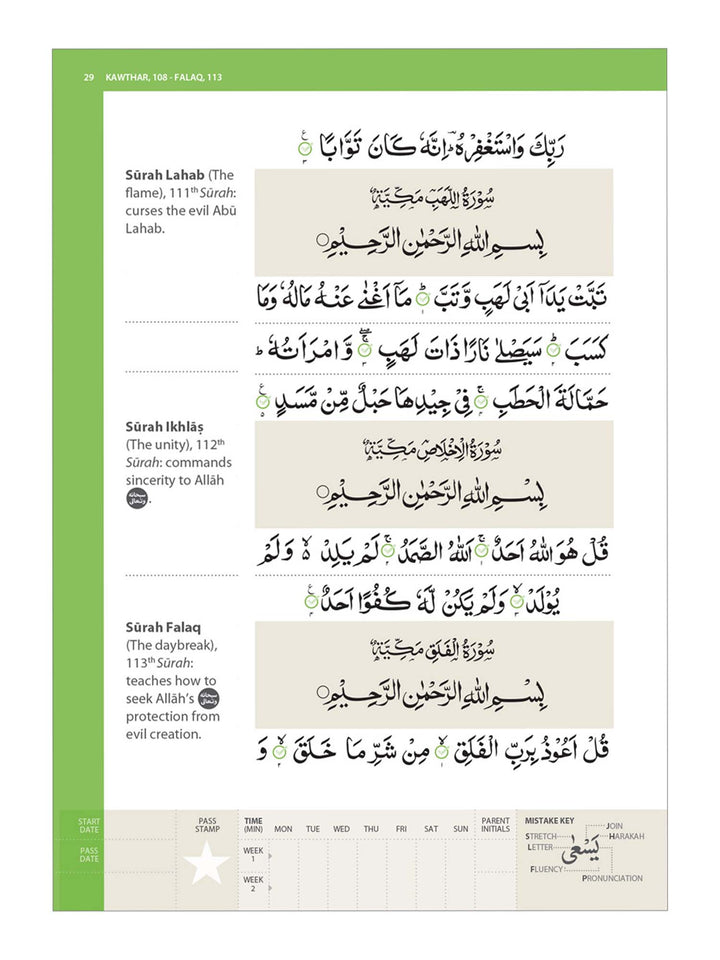 29 KAWTHAR, 108 - FALAQ, 113
رَبِّكَ وَاسْتَغْفِرْهُ ؕ اِنَّهٗ كَانَ تَوَّابًا
Sūrah Lahab (The
flame), 111th Sūrah:
curses the evil Abū
Lahab.
سُوْرَةُ اللَّهَبِ مَكِّيَّةٌ
بِسْمِ اللّٰهِ الرَّحْمٰنِ الرَّحِيْمِ
تَبَّتْ يَدَاۤ اَبِيْ لَهَبٍ وَّتَبَّ ؕ مَاۤ اَغْنٰى عَنْهُ مَالُهٗ وَمَا
كَسَبَ ؕ سَيَصْلٰى نَارًا ذَاتَ لَهَبٍ ۚۖ وَّامْرَاَتُهٗ ؕ
حَمَّالَةَ الْحَطَبِ ۚ فِيْ جِيْدِهَا حَبْلٌ مِّنْ مَّسَدٍ
Sūrah Ikhlāṣ
(The unity), 112th
Sūrah: commands
sincerity to Allāh
سبحانه وتعالى.
سُوْرَةُ الْاِخْلَاصِ مَكِّيَّةٌ
بِسْمِ اللّٰهِ الرَّحْمٰنِ الرَّحِيْمِ
قُلْ هُوَ اللّٰهُ اَحَدٌ ۚ اَللّٰهُ الصَّمَدُ ۚ لَمْ يَلِدْ ۙ وَلَمْ
يُوْلَدْ ۙ وَلَمْ يَكُنْ لَّهٗ كُفُوًا اَحَدٌ
Sūrah Falaq
(The daybreak),
113th Sūrah:
teaches how to
seek Allāh's سبحانه وتعالى
protection from
evil creation.
سُوْرَةُ الْفَلَقِ مَكِّيَّةٌ
بِسْمِ اللّٰهِ الرَّحْمٰنِ الرَّحِيْمِ
قُلْ اَعُوْذُ بِرَبِّ الْفَلَقِ ۙ مِنْ شَرِّ مَا خَلَقَ ۙ وَ
START
DATE
PASS
DATE
PASS
STAMP
TIME
(MIN) MON TUE WED THU FRI SAT SUN
WEEK
1
WEEK
2
PARENT
INITIALS
MISTAKE KEY
JOIN
STRETCH
HARAKAH
LETTER
يَسْعٰى
FLUENCY
PRONUNCIATION